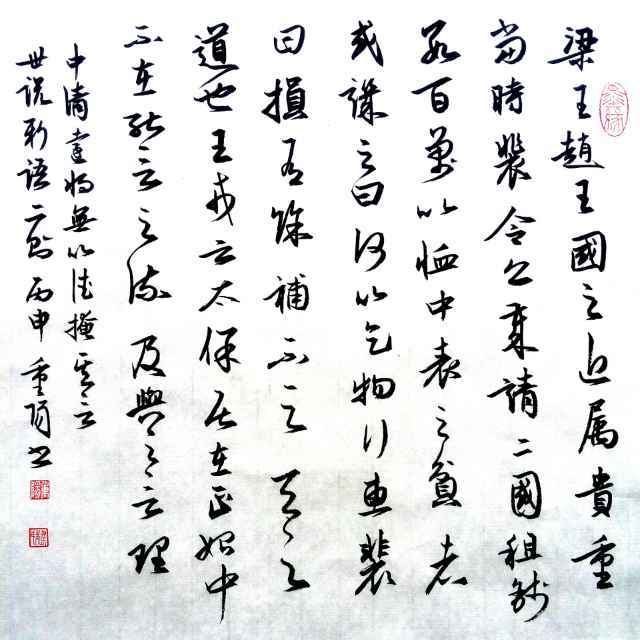 梁王趙王國之近属貴重
當時裴令公歲請二國租錢
數百萬以恤中表之貧者
或譏之曰何以乞物行惠裴
曰損有餘補不足天之
道也王戎云太保居在正始中
不在能言之流及與之言理
中清遠將無以德掩其言
世說新語二則丙申重陽書